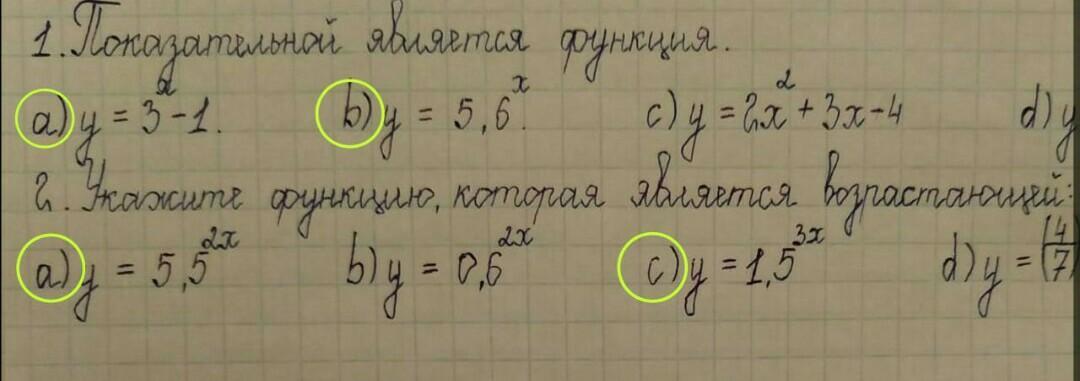 1. Показательной является функция.
a) y = 3² - 1. b) y = 5,6ˣ. c) y = 2x² + 3x - 4 d) y
2. Укажите функцию, которая является возрастающей:
a) y = 5,5²ˣ b) y = 0,6²ˣ c) y = 1,5³ˣ d) y = (4/7)